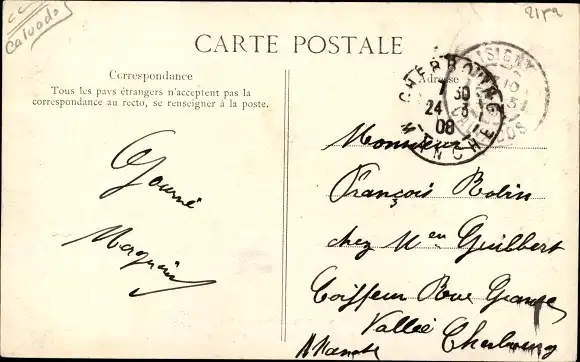 Calvados
2152
CARTE POSTALE
Correspondance
Tous les pays étrangers n'acceptent pas la
correspondance au recto, se renseigner à la poste.
Adresse
CHERBOURG
7 30
24 3
08
MANCHE
ISIGNY
CALVADOS
Monsieur
François Robin
chez Mr Guilbert
Coiffeur Rue Grande
Vallée Cherbourg
Manche